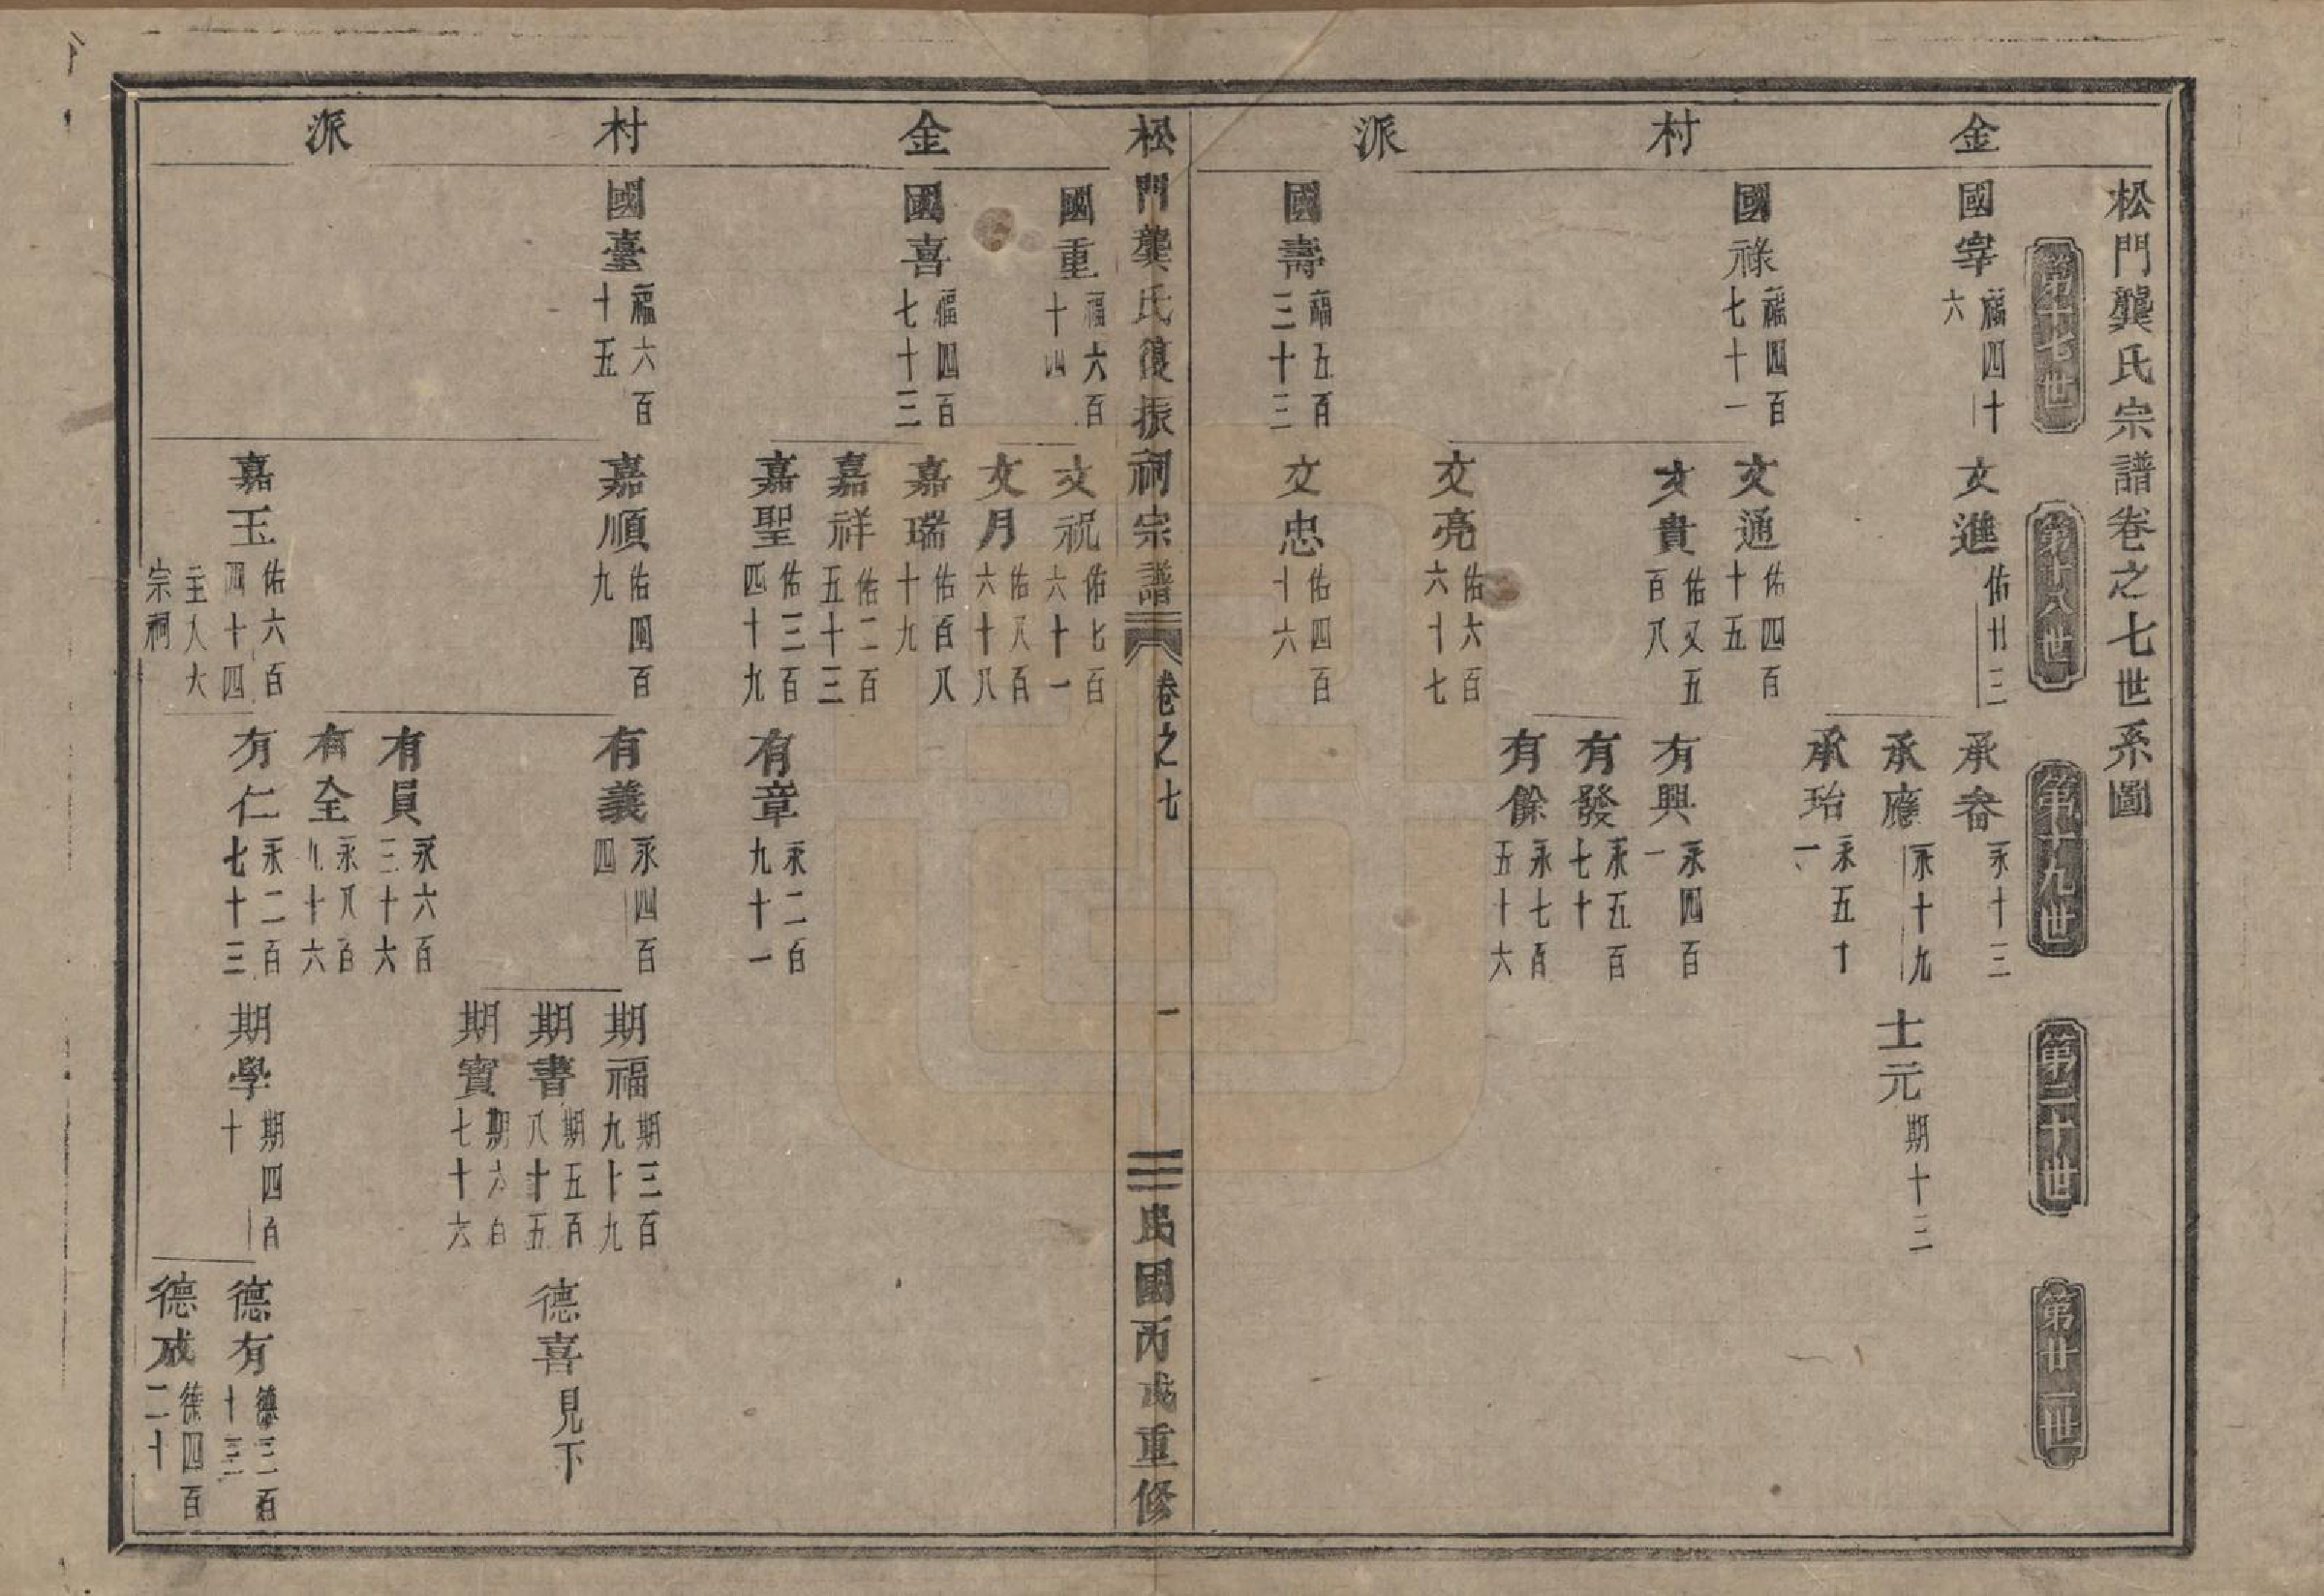 松門龔氏宗譜卷之七世系圖
第十七世
第十八世
第十九世
第二十世
第廿一世
金村派
國宰 福四十六
文進 佑廿三
承眷 永十三
承應 永十九
士元 期十三
承珆 永五十一
國祿 福四百七十一
文通 佑四百十五
文貴 佑又五百八
有興 永四百一
有發 永五百七十
有餘 永七百五十六
文亮 佑六百六十七
國壽 福五百三十三
文忠 佑四百十六
松門龔氏復振祠宗譜 卷之七 一 民國丙戌重修
金村派
國重 福六百十四
文祝 佑七百六十一
文月 佑八百六十八
國喜 福四百七十三
嘉瑞 佑百八十九
嘉祥 佑二百五十三
嘉聖 佑三百四十九
有章 永二百九十一
國臺 福六百十五
嘉順 佑四百九
有義 永四百四
期福 期三百九十九
期書 期五百八十五
德喜 見下
期寶 期六百七十六
有員 永六百三十六
有全 永八百九十六
嘉玉 佑六百四十四 主入大宗祠
有仁 永二百七十三
期學 期四百十
德有 德三百十三
德成 德四百二十